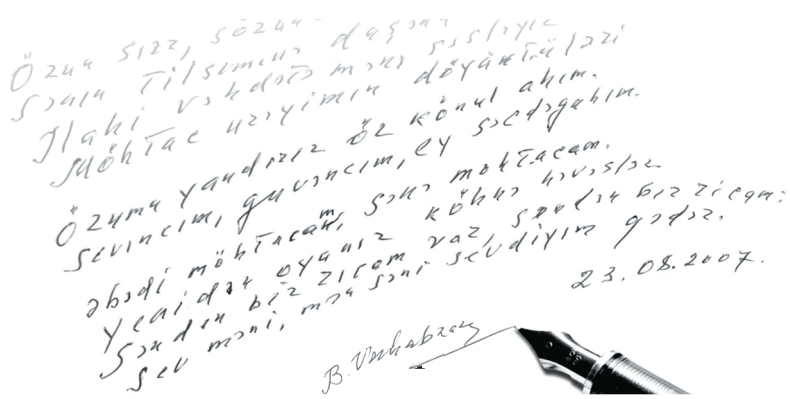 Özün sirr, sözün
Sənin tilsimin
İlahi vəhdətə məni səsləyir
Möhtac ürəyimin döyüntüləri
Özümü yandırır öz könül ahım.
Sevincim, güvəncim, ey səcdəgahım.
Əbədi möhtacam, sənə möhtacam.
Yenidən oyanır köhnə həvəslər
Səndən bir ricam var, səndən bir ricam:
Sev məni, mən səni sevdiyim qədər.
23.08.2007.
B. Vahabzadə